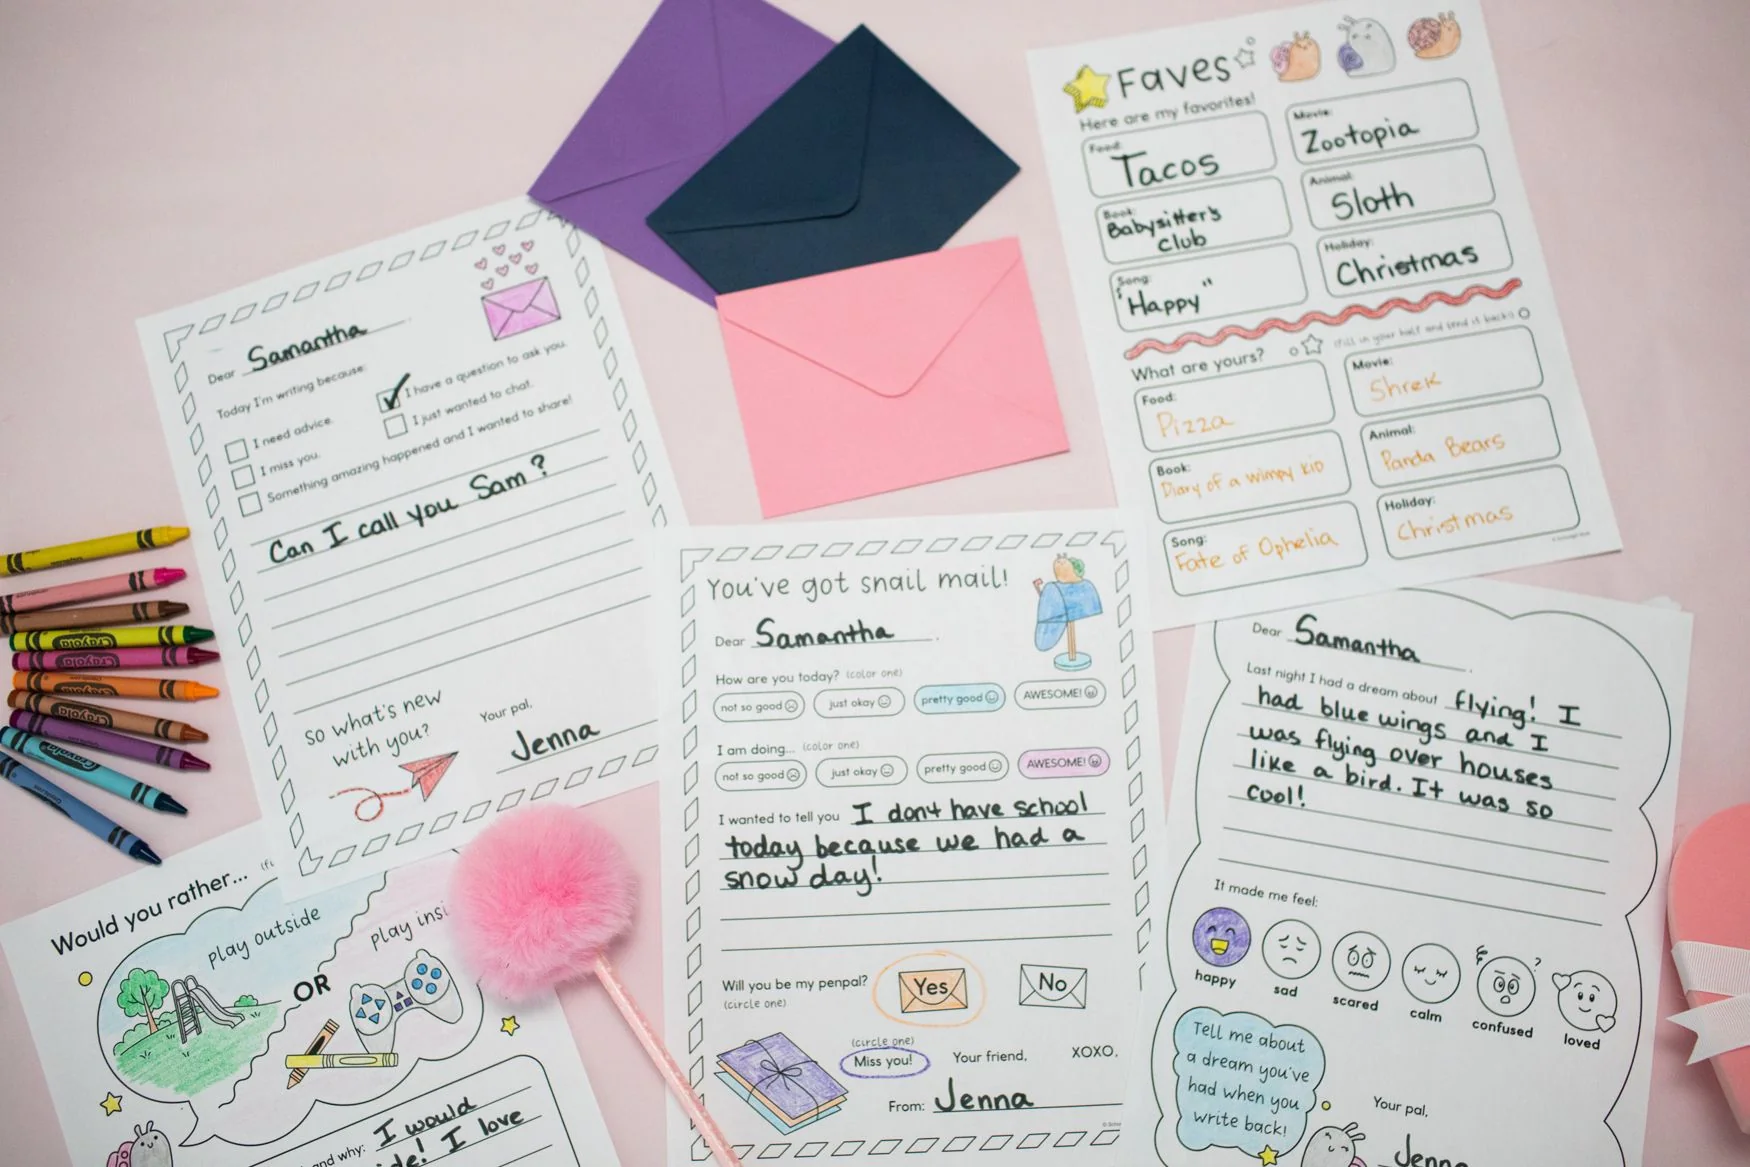 Dear Samantha
Today I'm writing because:
I have a question to ask you.
I need advice.
I just wanted to chat.
I miss you.
Something amazing happened and I wanted to share!
Can I call you Sam?
so what's new
with you?
Your pal,
Jenna
Faves
Here are my favorites!
Food:
Tacos
Movie:
Zootopia
Book:
Babysitter's
club
Animal:
Sloth
Song:
"Happy"
Holiday:
Christmas
What are yours?
(fill in your half and send it back!)
Food:
Pizza
Movie:
Shrek
Book:
Diary of a wimpy kid
Animal:
Panda Bears
Song:
Fate of Ophelia
Holiday:
Christmas
You've got snail mail!
Dear Samantha
How are you today? (color one)
not so good
just okay
pretty good
AWESOME!
I am doing... (color one)
not so good
just okay
pretty good
AWESOME!
I wanted to tell you I don't have school
today because we had a
snow day!
Will you be my penpal?
(circle one)
Yes
No
(circle one)
Miss you!
Your friend,
XOXO,
From: Jenna
Dear Samantha
Last night I had a dream about flying! I
had blue wings and I
was flying over houses
like a bird. It was so
cool!
It made me feel:
happy
sad
scared
calm
confused
loved
Tell me about
a dream you've
had when you
write back!
Your pal,
Jenna
Would you rather...
play outside
OR
play insi
and why: I would
de! I love
Crayola
Crayola
Crayola
Crayola
Crayola
Crayola